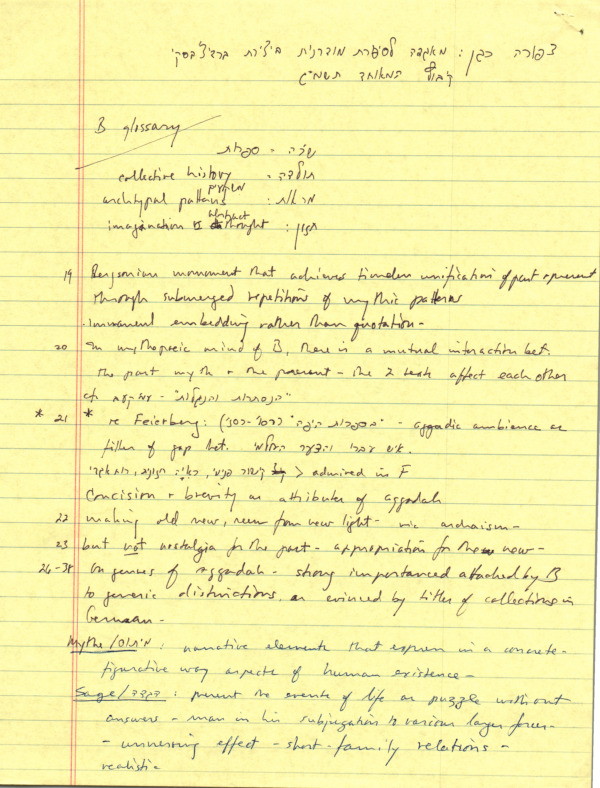 צפורה כגן: מאגדה לסיפורת מודרנית ביצירת ברדיצ'בסקי
הקבוץ המאוחד תשמ"ג
B glossary
שירה = ספרות
collective history תולדה =
archtypal patterns מראות:
imagination & abstract thought חזון:
19 Bergsonian monument that achieves timeless unification of past & present
through submerged repetitions of mythic patterns
immanent embedding rather than quotation -
20 In mythopoeic mind of B, there is a mutual interaction bet.
the past myth & the present - the 2 texts affect each other
"הנסתרות והנגלות"
* 21 * re Feierberg: "בספרות היפה" - aggadic ambience as
filler of gap bet. איש עברי והצער העולמי.
> admired in F
Concision & brevity as attributes of aggadah
22 making old new, seen from new light - via archaism -
23 but not nostalgia for the past - appropriation for the new -
24-38 On genres of aggadah - strong importance attached by B
to generic distinctions, as evinced by titles of collections in
German -
Mythe/מיתוס: narrative elements that express in a concrete-
figurative way aspects of human existence -
Sage/הגדה: present the events of life as puzzle without
answers - man in his subjugation to various larger forces
- unnerving effect - short - family relations -
realistic